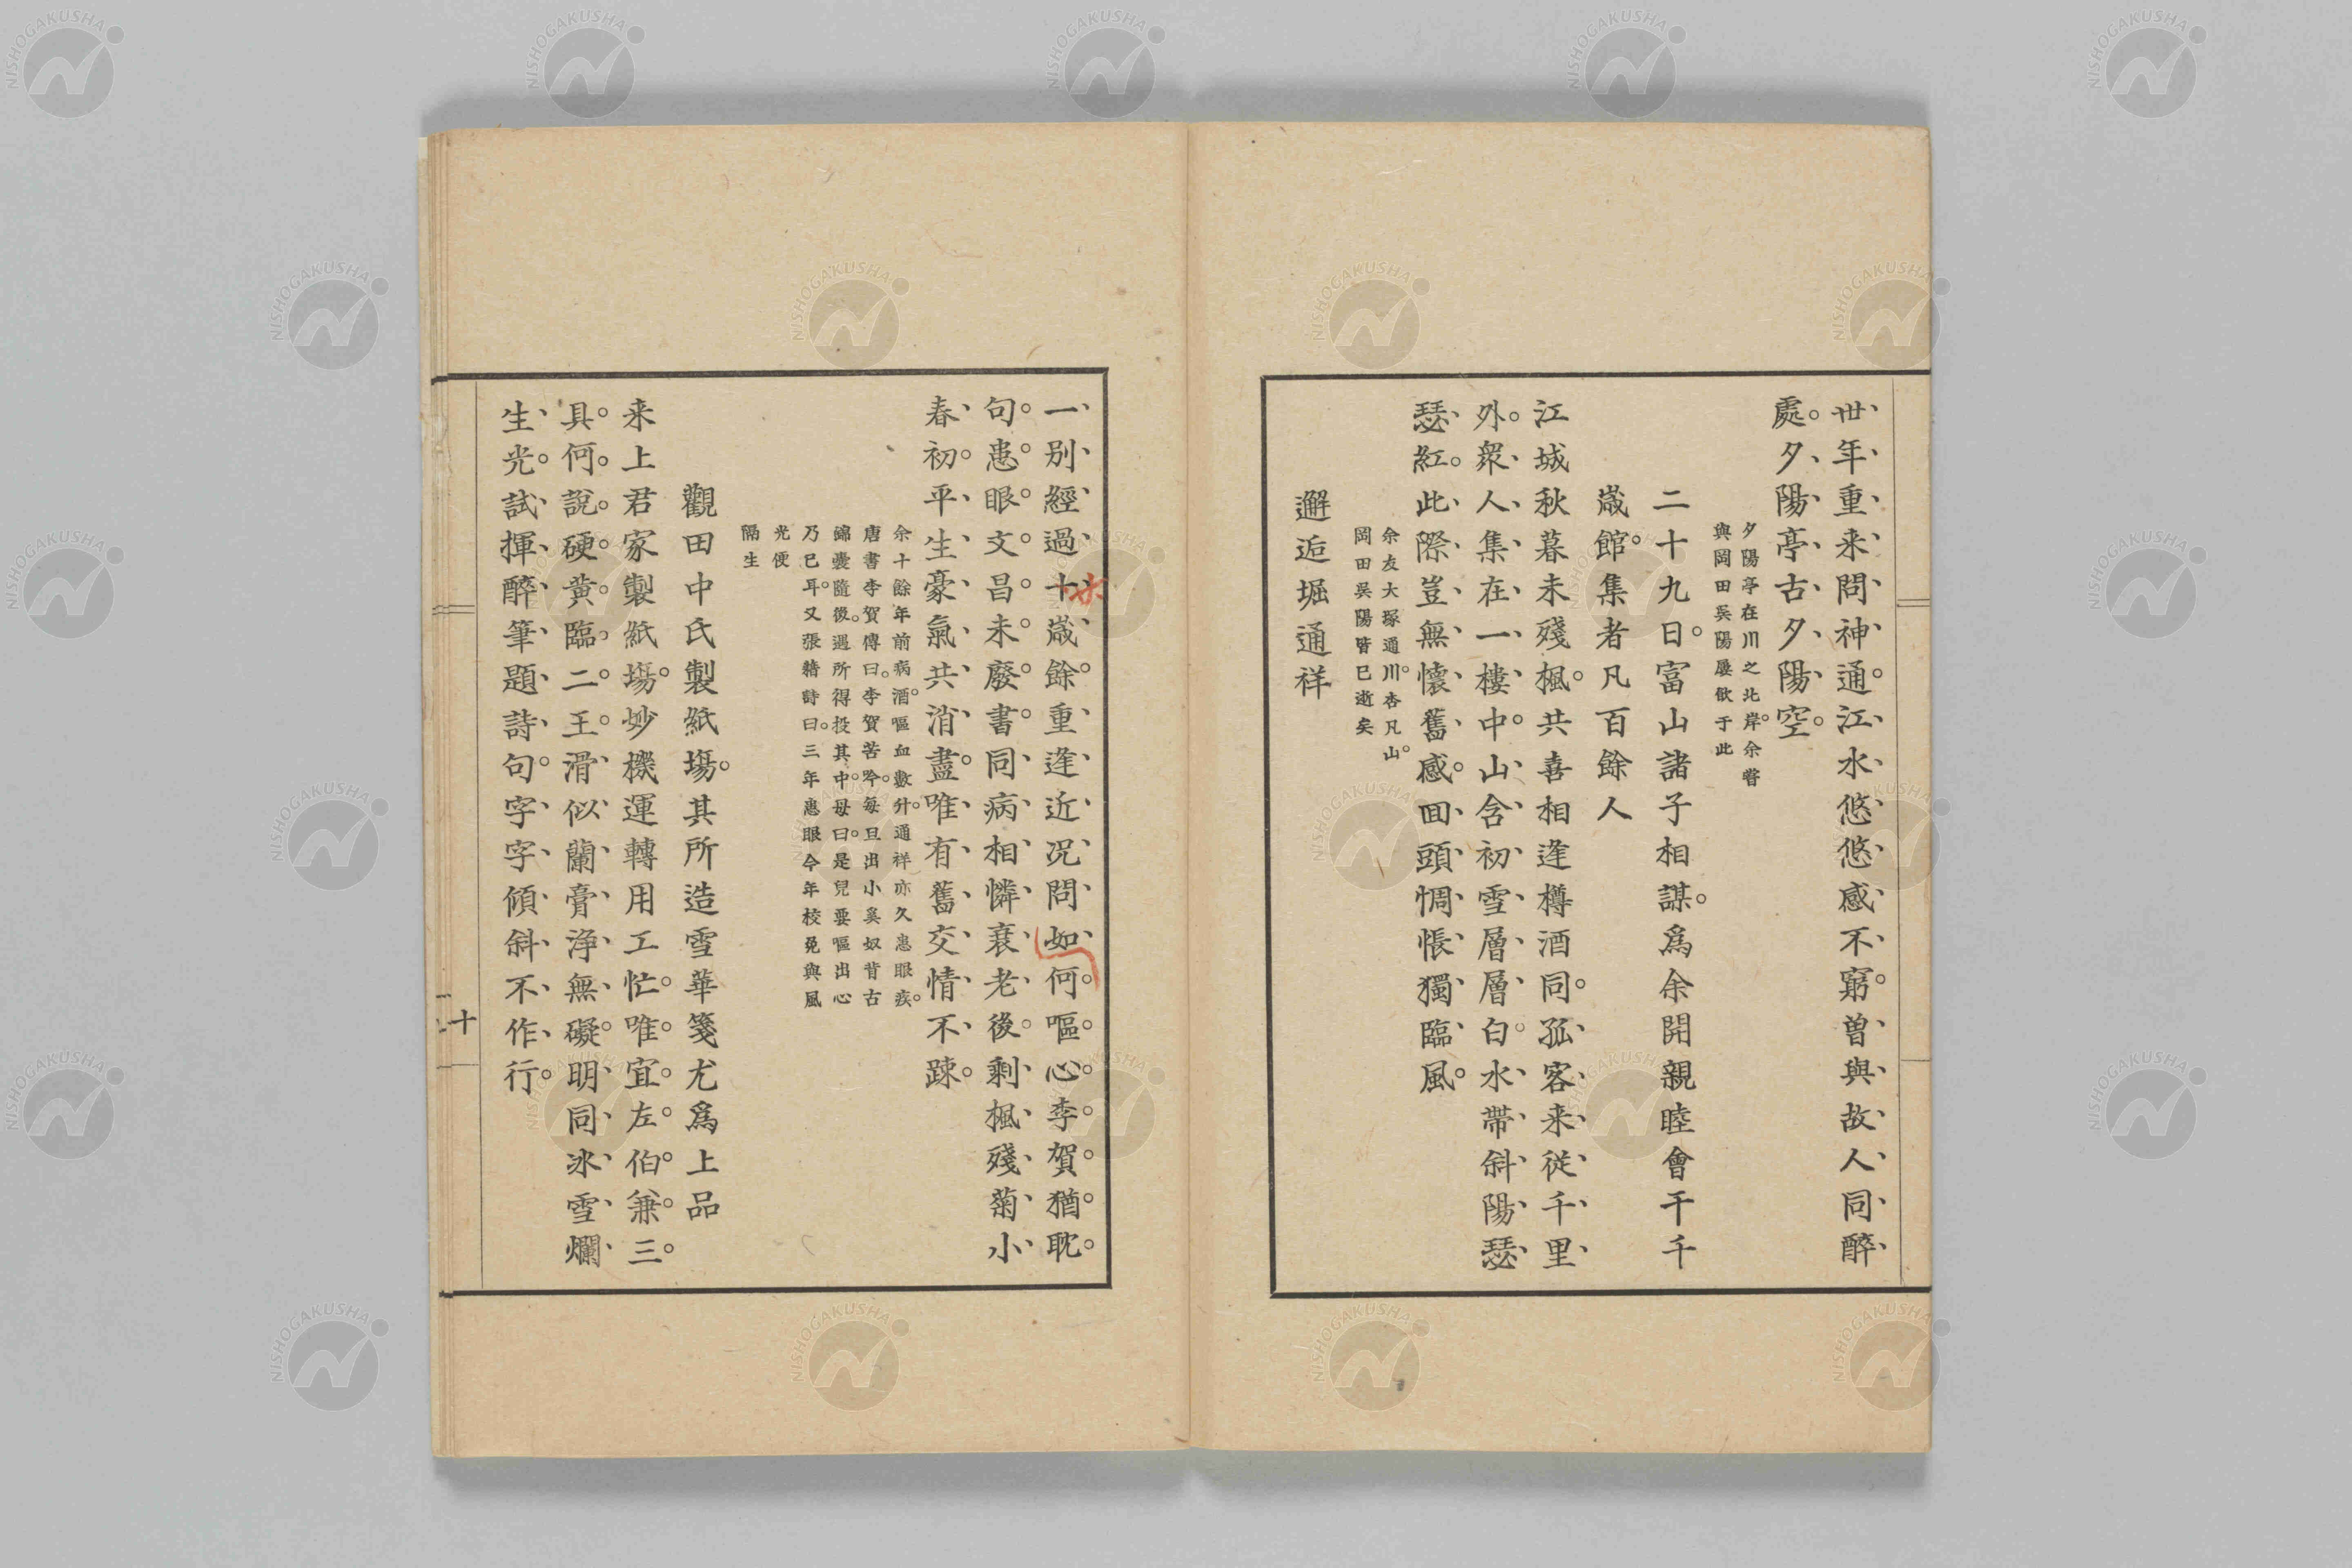 丗年重来問神通。江水悠悠感不窮。曽與故人同醉
處。夕陽亭古夕陽空。
夕陽亭在川之北岸。余嘗
與岡田吳陽屢飲于此
二十九日。富山諸子相謀。爲余開親睦會于千
歳館。集者凡百餘人
江城秋暮未殘楓。共喜相逢樽酒同。孤客来從千里
外。衆人集在一樓中。山含初雪層層白。水帶斜陽瑟
瑟紅。此際豈無懷舊感。回頭惆悵獨臨風。
余友大塚通川。杏凡山。
岡田吳陽皆已逝矣
邂逅堀通祥
一別經過十歳餘。重逢近况問如何。嘔心李賀猶耽
句。患眼文昌未廢書。同病相憐衰老後。剩楓殘菊小
春初。平生豪氣共消盡。唯有舊交情不踈。
余十餘年前病酒。嘔血數升。通祥亦久患眼疾。
唐書李賀傳曰。李賀苦吟。每旦出小奚奴背古
錦囊隨後。遇所得投其中。母曰。是兒要嘔出心
乃已耳。又張籍詩曰。三年患眼今年校免與風
光便
隔生
觀田中氏製紙塲。其所造雪華箋尤爲上品
来上君家製紙塲。妙機運轉用工忙。唯宜左伯兼三
具。何說硬黄臨二王。滑似蘭膏浄無礙。明同氷雪爛
生光。試揮醉筆題詩句。字字傾斜不作行。
十
NISHOGAKUSHA